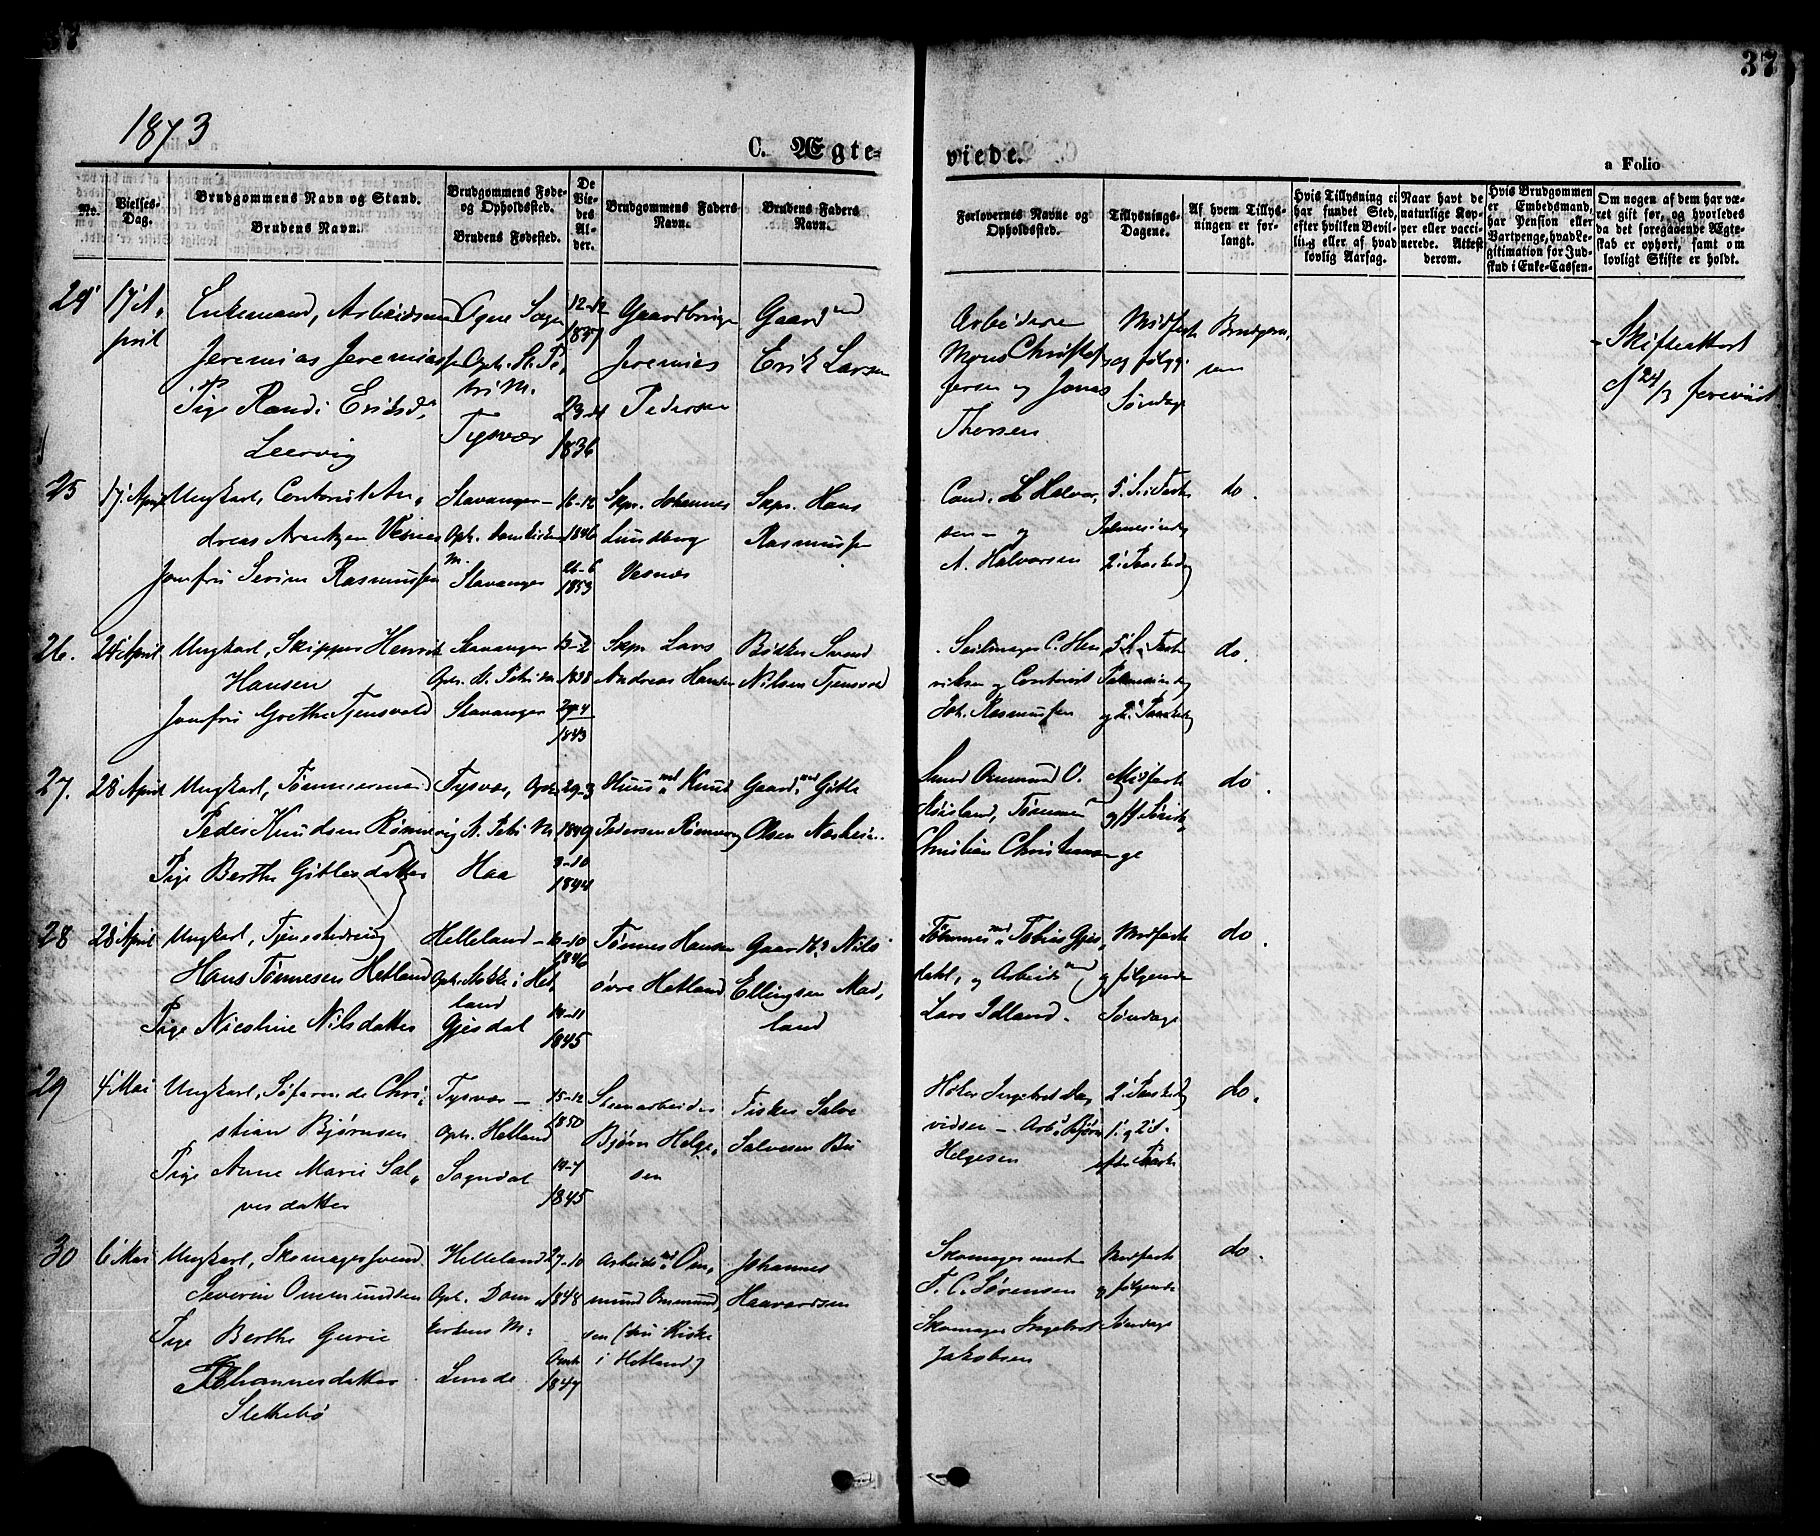 37
37
1873
C. Ægte-
viede.
a Folio
No.
Vielses-
Dag.
Brudgommens Navn og Stand.
Brudens Navn.
Brudgommens Føde-
og Opholdssted.
Brudens Fødested.
De
Vie-
des
Al-
der.
Brudgommens Faders
Navn.
Brudens Faders
Navn.
Forlovernes Navne og
Opholdssted.
Tillysnings-
Dagene.
Af hvem Tillys-
ningen er for-
langt.
Hvis Tillysning ei
har fundet Sted,
efter hvilken Bevil-
ling eller af hvad
lovlig Aarsag.
Naar havt de
naturlige Kop-
per eller vacci-
nerede. Attest
derom.
Hvis Brudgommen
er Embedsmand,
har Pension eller
Vartpenge, hvad Le-
gitimation for Ind-
skud i Enke-Cassen.
Om nogen af dem har væ-
ret gift før, og hvorledes
da det foregaaende Ægte-
skab er ophørt, samt om
lovligt Skifte er holdt.
24
17' A-
pril
Enkemand, Arbeidsm
Jeremias Jeremiassen
Pige Randi Eriksd.
Leervig
Ogne Sogn
Oph. St. Pe-
tri M.
Tysvær
12-12
1837
23-4
1836
Gaardbruger
Jeremias
Pedersen
Gaardmd
Erik Larsen
Arbeidere
Mons Christof
fersen og Jonas
Thorsen
Midfaste
og følgg.
Søndage
Brudgom-
men
Skifteattest
af 24/3 foreviist
25
17' April
Ungkarl, Contorist An-
dreas Arentzen Vesnes
Jomfru Sevine Rasmussen
Stavanger -
Oph. Domkirken
M.
Stavanger
16-12
1846
26-6
1853
Skpr. Johannes
Lundberg
Vesnes
Skpr. Hans
Rasmussen
Cand. L Halvor-
sen - og
A. Halvorsen
5. S. i Faste
Palmesøndag
2' Paaskedag
do.
26.
24' April
Ungkarl, Skipper Henrik
Hansen
Jomfru Grethe Tjensvold
Stavanger
Oph. St. Petri M.
Stavanger
13-2
1838
29-4
1843
Skpr Lars
Andreas Hansen
Bødker Svend
Nilsen Tjensvold
Seilmager C. Hen
riksen og Contorist
Joh. Rasmussen
5' S. i Faste
Palmesøndag
og 2' Paaskedag
do.
27.
28' April
Ungkarl, Tømmermand
Peder Knudsen Rønnevig
Pige Berthe Gitlesdatter
Tysvær, Oph.
St. Petri M.
Haa
29-3
1849
9-10
1844
Huusmd Knud
Pedersen Rønnevig
Gaardmd Gitle
Olsen Nærheim
Smed Osmund O.
Høisland, Tømmermd
Christian Christensen
Midfaste
og ff. Sønda-
ge
do.
28
28' April
Ungkarl, Tjenestedreng
Hans Tønnesen Hetland
Pige Nicoline Nilsdatter
Helleland -
Oph. Stokke i Het-
land
Gjesdal
10-10
1846
14-11
1845
Tønnes Hansen
øvre Hetland
Gaardbr. Nils
Ellingsen Mad-
land
Tømmermd Tobias Gjes-
dahl, og Arbeidsmd
Lars Idland.
Midfaste
og følgende
Søndage
do.
29
4' Mai
Ungkarl, Søfarende Chri-
stian Bjørnsen
Pige Anne Marie Sal-
vesdatter
Tysvær -
Oph. Hetland
Sogndal
15-12
1850
14-7
1845
Steenarbeider
Bjørn Helge-
sen
Fisker Salve
Salvesen Bu
Høker Ingebret Da-
vidsen - Arbm Bjørn
Helgesen
2' Paaskedag
1' og 2' S.
efter Paaske
do.
30
6' Mai
Ungkarl, Skomagersvend
Severin Ommundsen
Pige Berthe Gurie
Johannesdatter
Slettebø
Helleland
Oph. Dom-
kirkens M.
Lunde
27-10
1848
1847
Arbeidsmd Om-
mund Ommund-
sen (tru Kiske
i Hetland)
Johannes
Haavardsen
Skomagermest
T. C. Sørensen
Skomager Ingebret
Jakobsen
Midfaste
og følgende
Søndage
do.